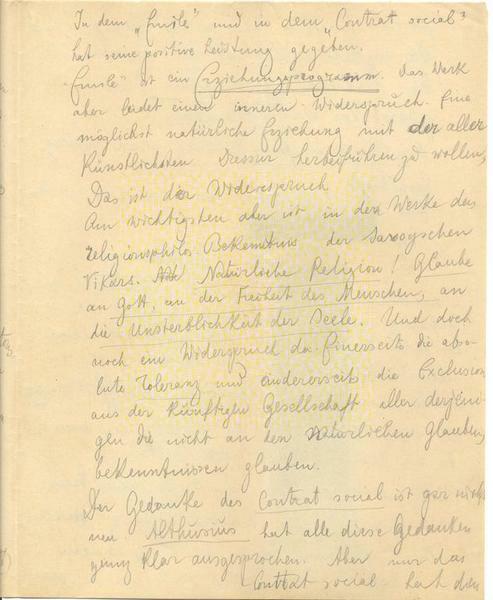 In dem „Emile" und in dem „Contrat social"
hat seine positive Leistung gegeben.
„Emile" ist ein Erziehungsprogramm. Das Werk
aber leidet einen inneren Widerspruch. Eine
möglichst natürliche Erziehung mit der aller
künstlichsten Dressur herbeiführen zu wollen,
Das ist der Widerspruch
Am wichtigsten aber ist in dem Werke das
religionsphilos. Bekenntnis der Savoyschen
Vikars. Natürliche Religion! Glaube
an Gott, an der Freiheit des Menschen, an
die Unsterblichkeit der Seele. Und doch
noch ein Widerspruch da. Einerseits die abso-
lute Toleranz und andererseits die Exclusion
aus der künftigen Gesellschaft aller derjeni-
gen die nicht an den natürlichen Glauben,
bekenntnissen glauben.
Der Gedanke des Contrat social ist gar nicht
neu Althusius hat alle diese Gedanken
ganz klar ausgesprochen. Aber nur das
Contrat social hat den